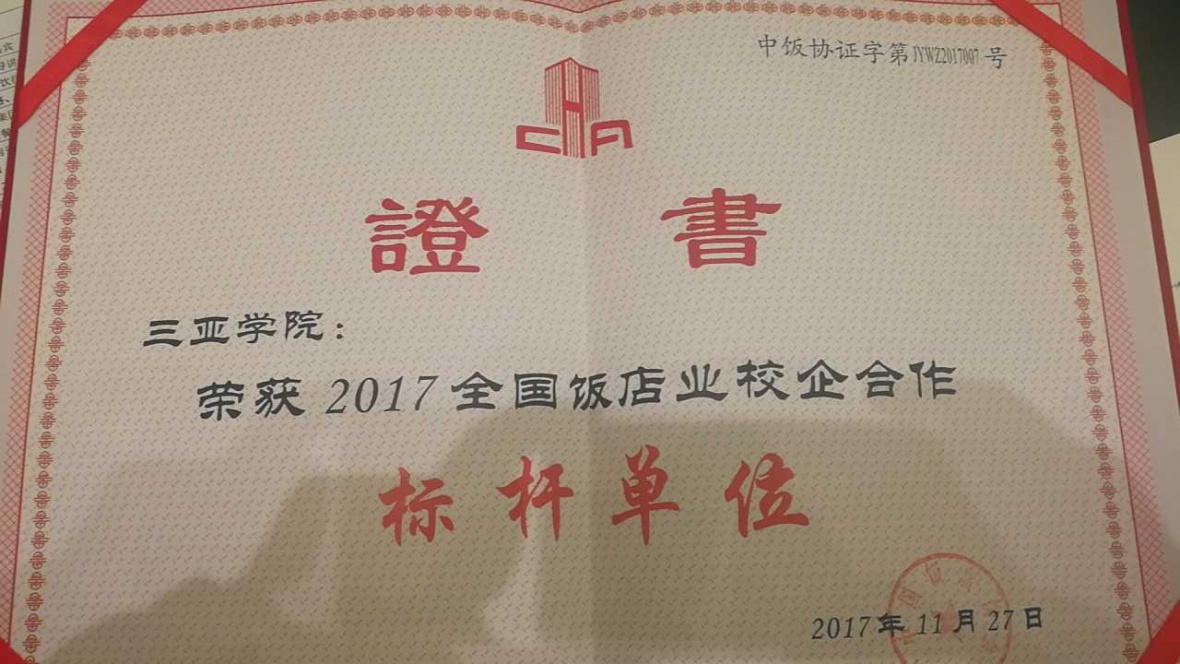 中饭协证字第JYWZ2017007号
CHA
證 書
三亚学院：
荣获 2017 全国饭店业校企合作
标杆单位
2017年 11 月 27 日